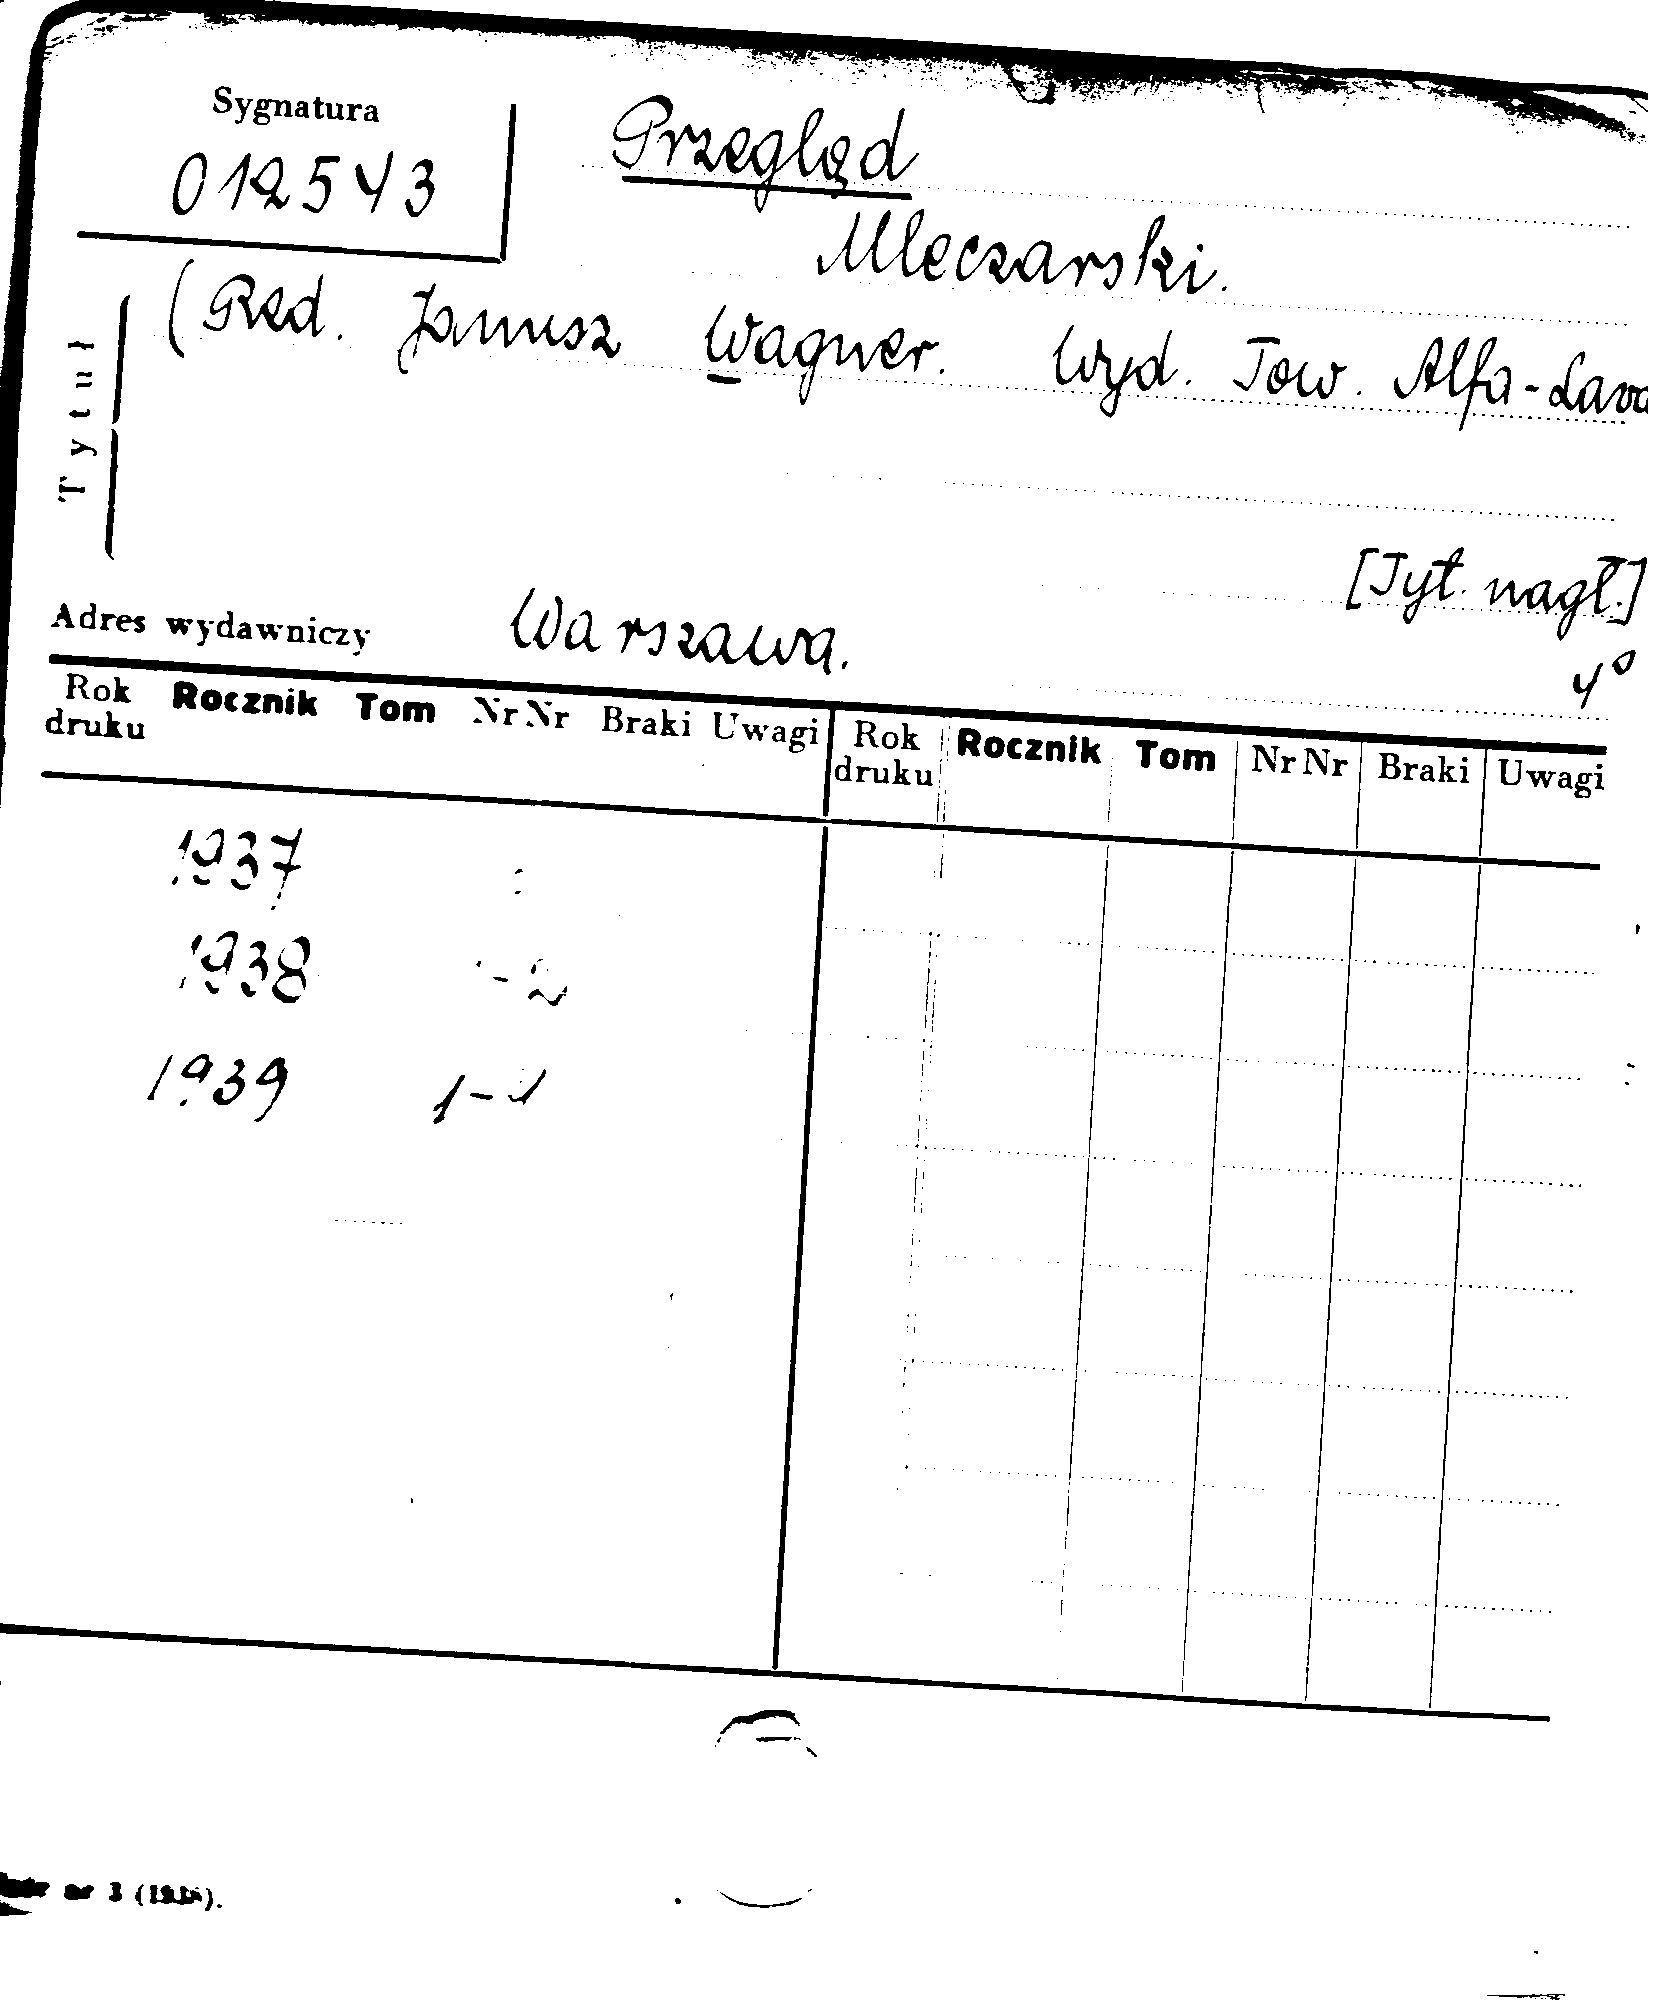 Sygnatura
012543
Przegląd
Mleczarski.
(Red. Janusz Wagner. Wyd. Tow. Alfa-Lava
Tytuł
[Tyt. nagł.]
Adres wydawniczy Warszawa.
4°
Rok druku Rocznik Tom Nr Nr Braki Uwagi Rok druku Rocznik Tom Nr Nr Braki Uwagi
1937
1938 -2
1939 1-
nr 3